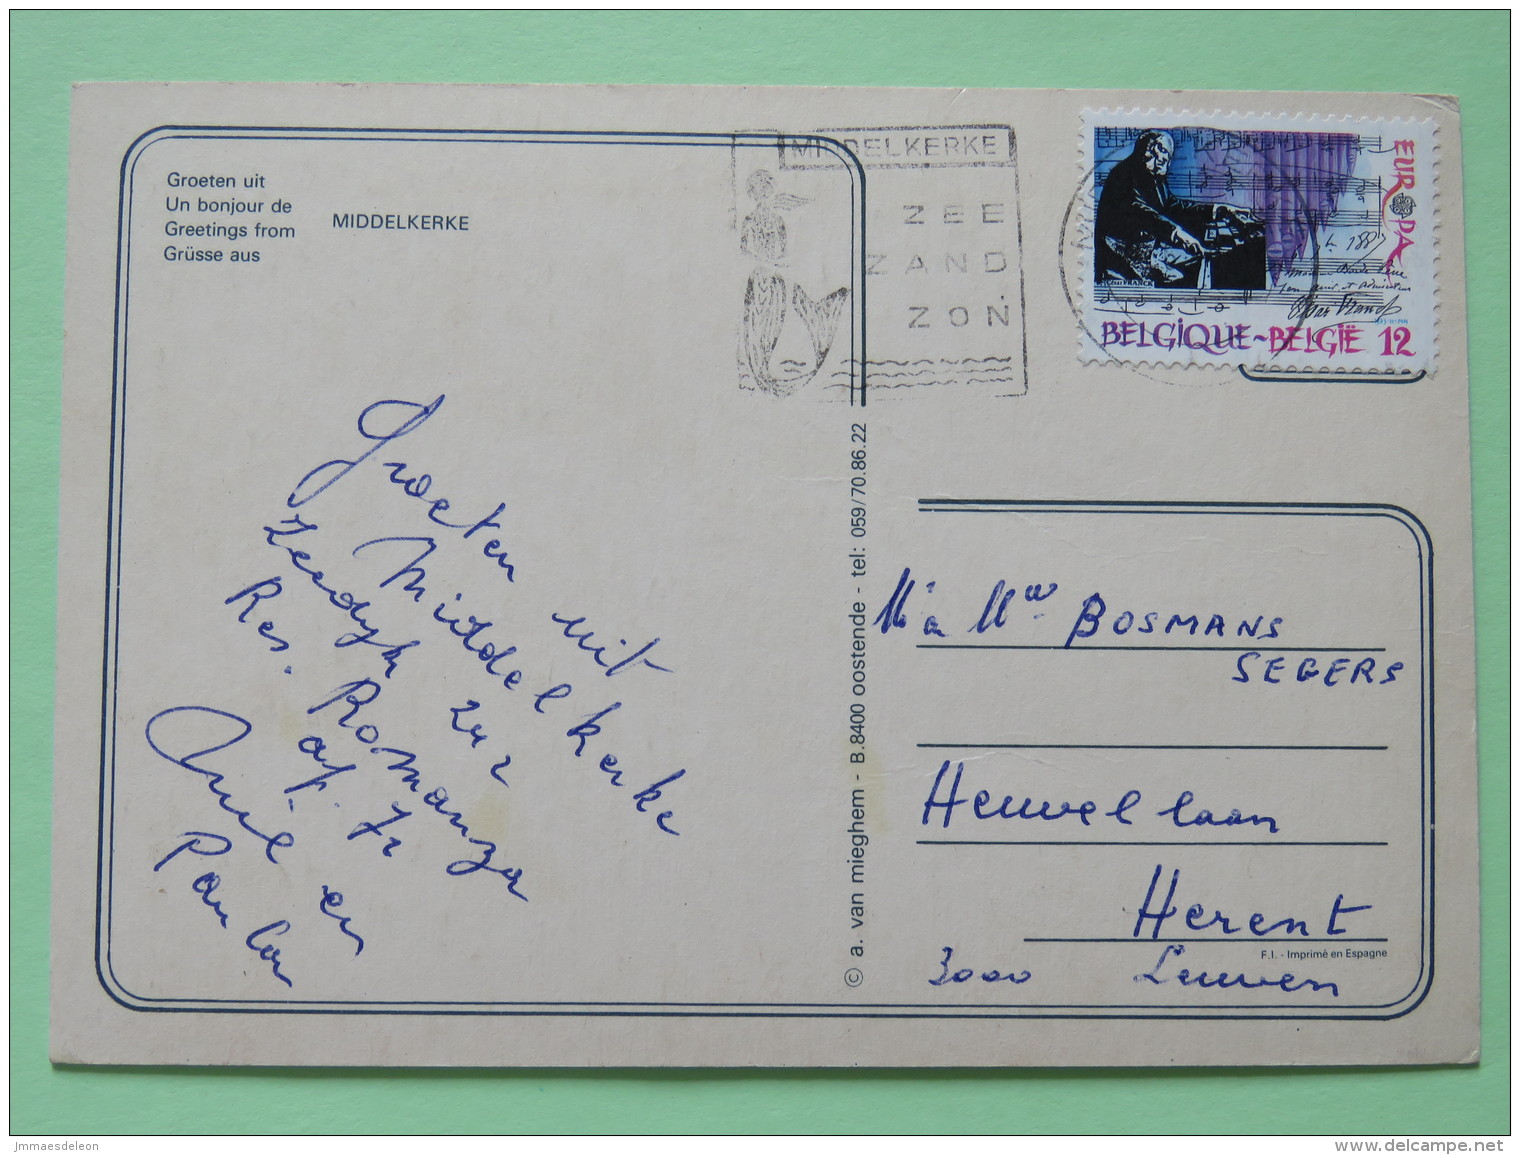 Groeten uit
Un bonjour de
Greetings from
Grüsse aus
MIDDELKERKE
MIDDELKERKE
ZEE
ZAND
ZON
EUROPA
CÉSAR FRANCK
BELGIQUE~BELGIË 12
Groeten uit
Middelkerke
Zeedijk 242
Res. Romanza
ap. 72
en
© a. van mieghem - B.8400 oostende - tel: 059/70.86.22
BOSMANS
SEGERS
Heuvellaan
Herent
F.I. - Imprimé en Espagne
3000 Leuven
jmmaesdeleon
www.delcampe.net